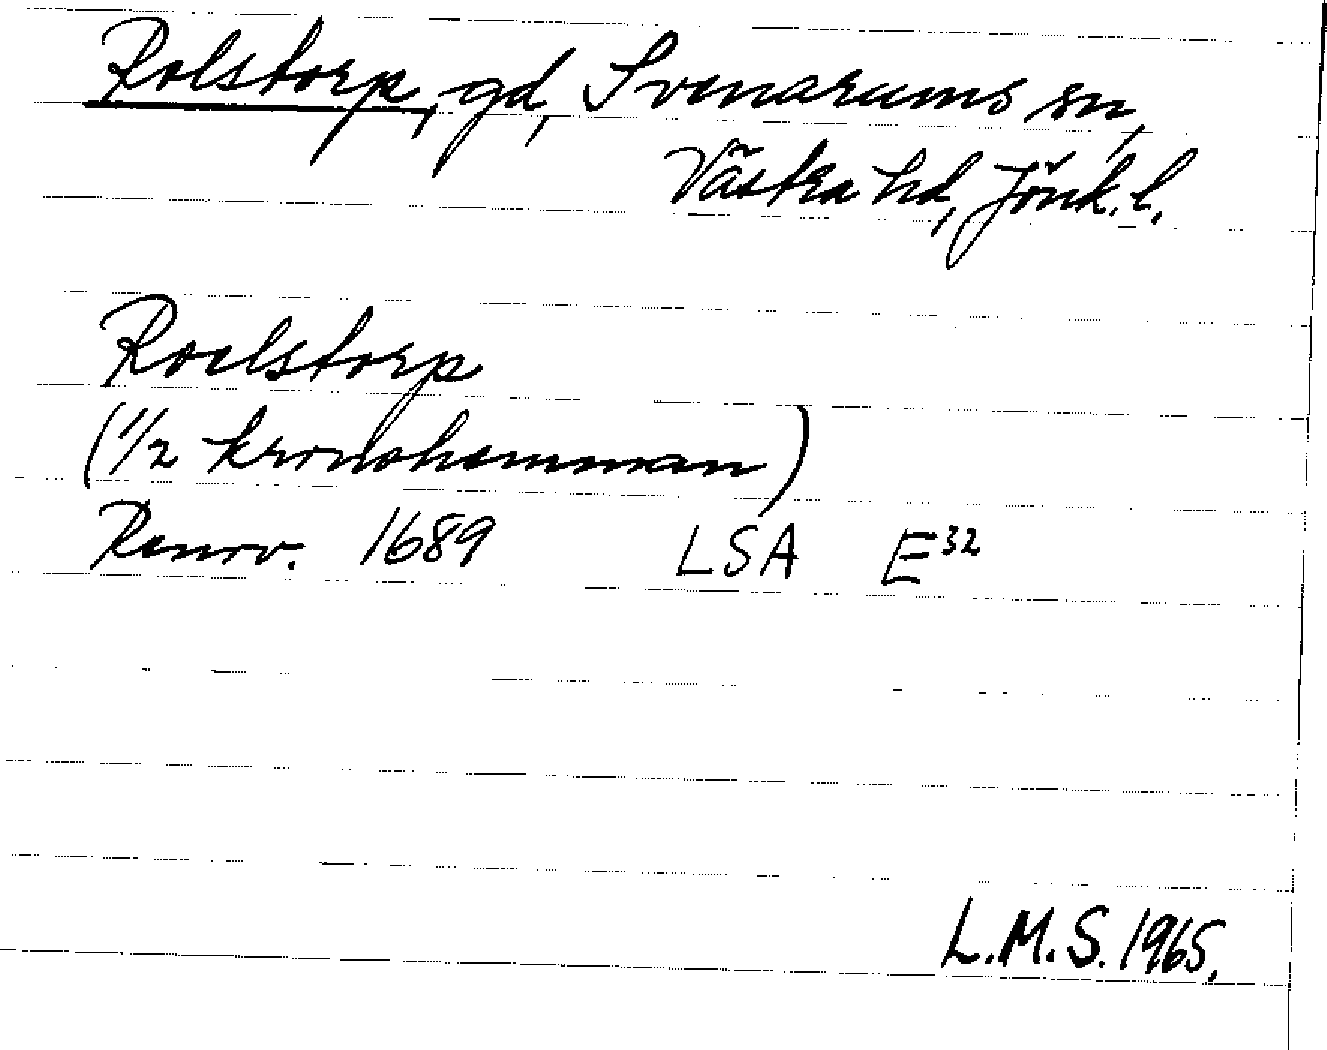 Rolstorp, gd, Svenarums sn,
Västra hd, Jönk. l.
Roelstorp
(1/2 kronohemman)
Renov. 1689 LSA E32
L.M.S. 1965.